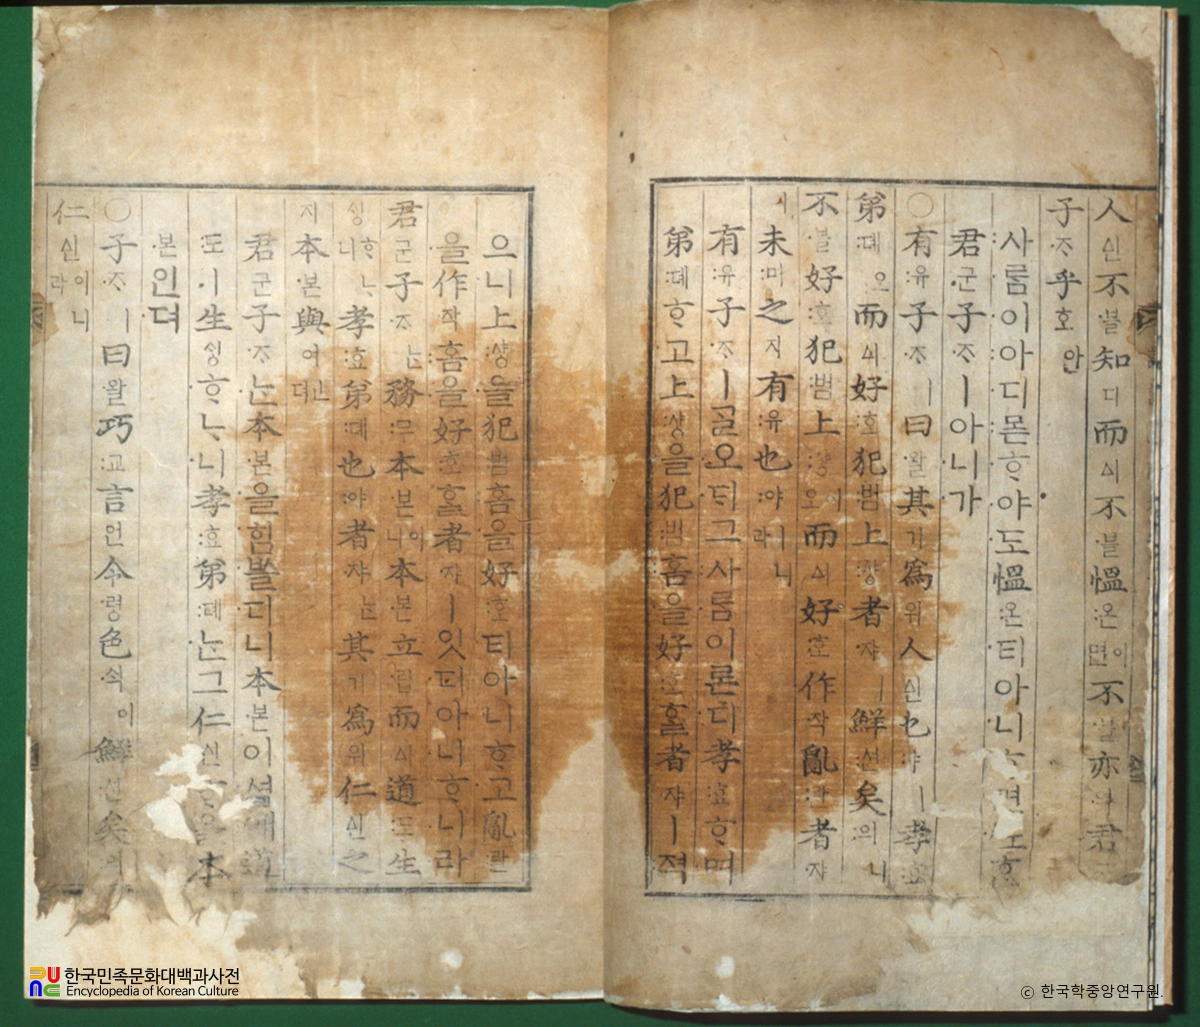 人ᅀᅵᆫ不블知디而ᅀᅵ不블慍온이면不블亦역君
子ᄌᆞ乎호아
사ᄅᆞᆷ이아디몯ᄒᆞ야도慍온티아니ᄒᆞ면
君군子ᄌᆞㅣ아니가
○有유子ᄌᆞㅣ曰왈其기爲위人ᅀᅵᆫ也야ㅣ孝효
弟뎨오而ᅀᅵ好호犯범上샹者쟈ㅣ鮮션矣의니
不블好호犯범上샹이오而ᅀᅵ好호作작亂란者쟈
ㅣ未미之지有유也야ㅣ니라
有유子ᄌᆞㅣᄀᆞᆯ오ᄃᆡ그사ᄅᆞᆷ이론디孝효ᄒᆞ며
弟뎨ᄒᆞ고上샹을犯범홈을好호ᄒᆞᆯ者쟈ㅣ젹
으니上샹을犯범홈을好호티아니ᄒᆞ고亂란
을作작홈을好호ᄒᆞᆯ者쟈ㅣ잇디아니ᄒᆞ니라
君군子ᄌᆞᄂᆞᆫ務무本본이니本본立립而ᅀᅵ道도生
ᄉᆡᆼᄒᆞᄂᆞ니孝효弟뎨也야者쟈ᄂᆞᆫ其기爲위仁ᅀᅵᆫ之
지本본與여ㅣᆫ뎌
君군子ᄌᆞᄂᆞᆫ本본을힘ᄡᅳᆯ디니本본이셤애道
도ㅣ生ᄉᆡᆼᄒᆞᄂᆞ니孝효弟뎨ᄂᆞᆫ그仁ᅀᅵᆫ本
본인뎌
○子ᄌᆞㅣ曰왈巧교言언令령色ᄉᆡᆨ이鮮션矣의
仁ᅀᅵᆫ이니라
한국민족문화대백과사전
Encyclopedia of Korean Culture
ⓒ 한국학중앙연구원.